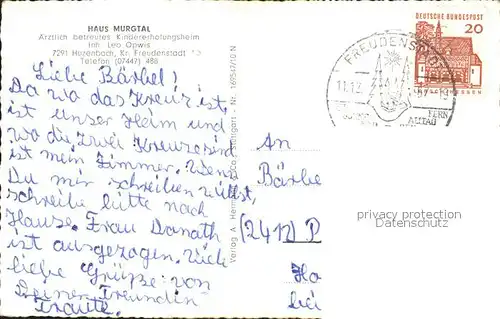 HAUS MURGTAL
Ärztlich betreutes Kindererholungsheim
Inh. Leo Opwis
7291 Herzenbach, Kr. Freudenstadt
Telefon (07447) 488
Liebe Bärbel!
Da wo das Kreuz ist,
ist unser Heim und
wo die zwei Kreuze sind
ist mein Zimmer. Wenn
Du mir schreiben willst,
schreibe bitte nach
Hause. Frau Donath
ist ausgezogen. Viele
liebe Grüße von
Deiner Freundin
Traute.
Verlag A. Stuttgart - Nr. 169547/10 N
DEUTSCHE BUNDESPOST
20
FREUDENST
11.1
FERN
ALLTAG
An
Bärbe
(2412) P
Ha
bei
privacy protection
Datenschutz